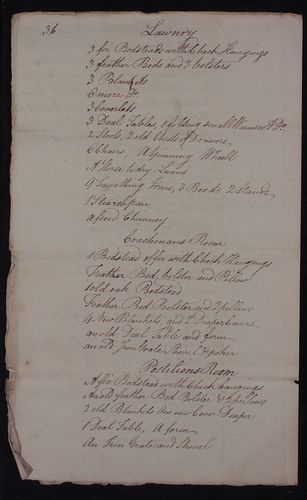 36
Lawnry
3 fir Bedsteads with Check Hangings
3 feather Beds and 3 bolsters
3 Blankets
6 more Do
3 Coverlets
5 Deal Tables, 1 folding small Wainscot Do
2 Stools, 2 old Chests of Drawers,
6 Chairs, A Spinning Wheell
A Horse to dry Linens
9 Smoothing Irons, 3 Boards 2 Stands
1 Starch pan
a fixed Chimney
Coachmans Room
1 Bedstead of fir with Check Hangings
Feather Bed, bolster and Pillow
1 old oak Bedstead
Feather Bed Bolster and 2 pillows
4 New Blankets, and 2 Diaper Covers,
an old Deal Table and form
an old Iron Grate Shovel & poker
Postilions Room
A fir Bedstead with Check hangings
An old feather Bed Bolster & 2 pillows
2 old Blankets One new Cover Diaper
1 Deal Table, A form
An Iron Grate and Shovel